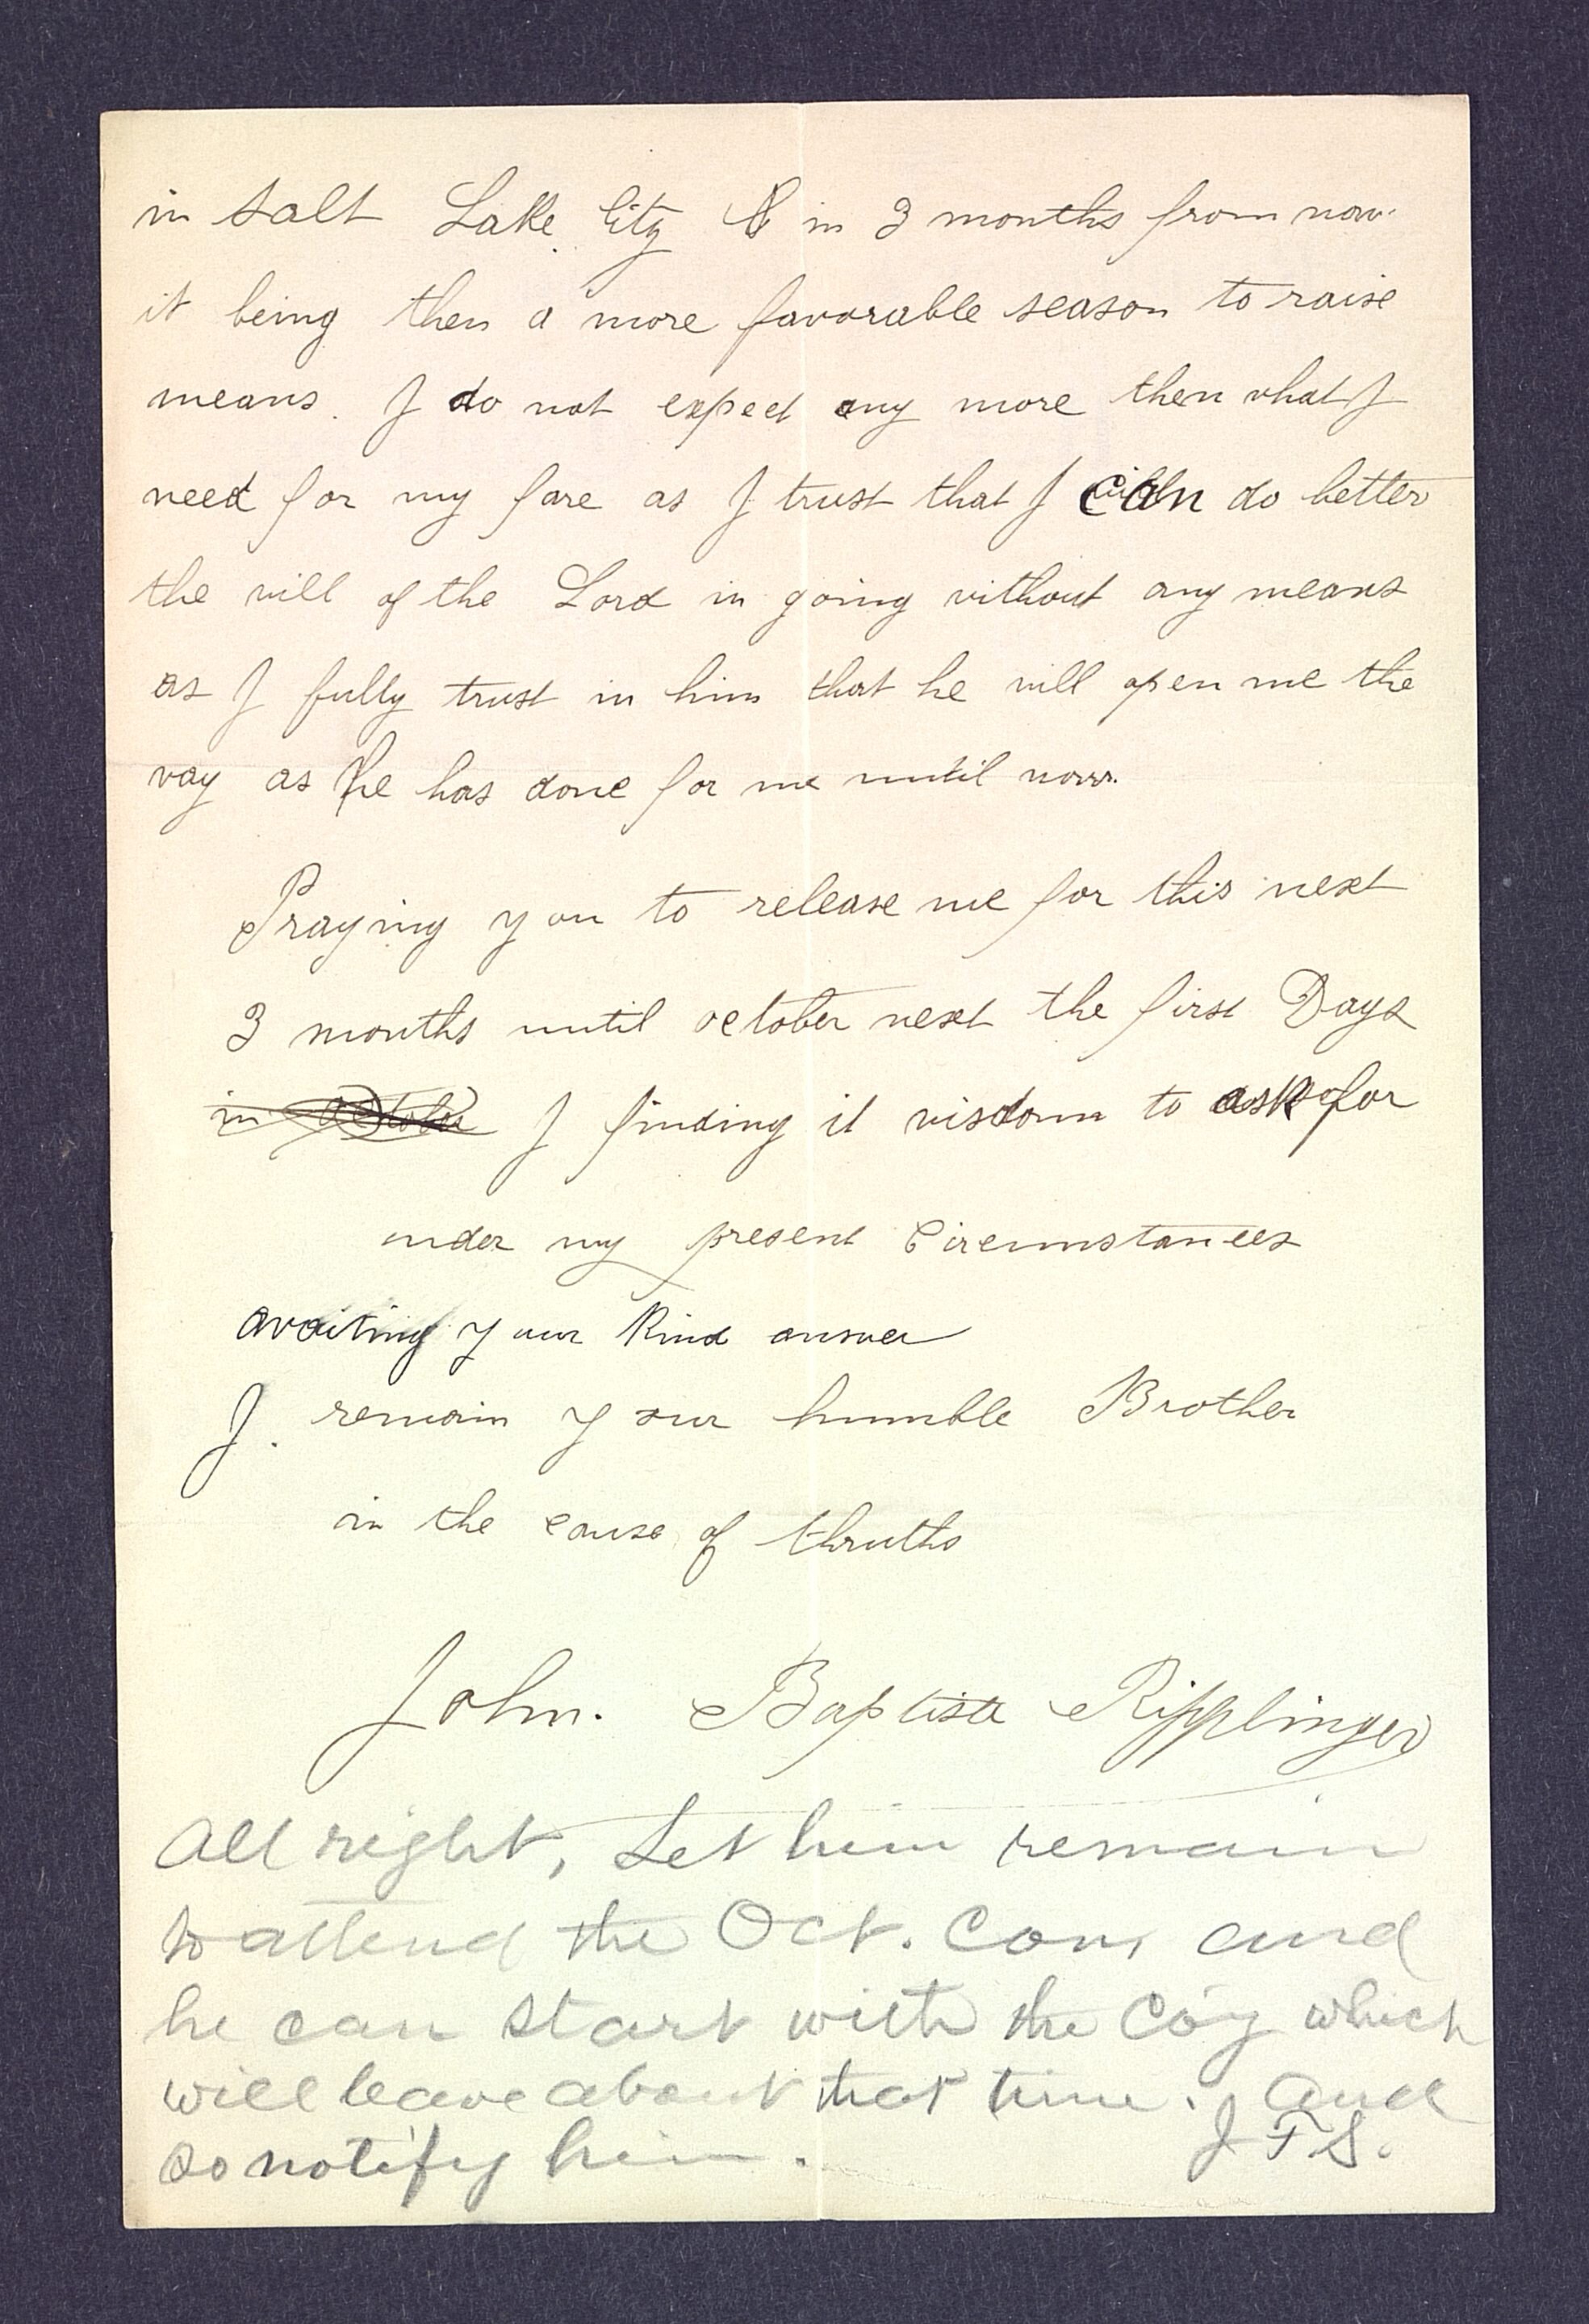 in Salt Lake City & in 3 months from now.
it being then a more favorable season to raise
means. I do not expect any more then what I
need for my fare as I trust that I can do better
the will of the Lord in going without any means
as I fully trust in him that he will open me the
way as he has done for me until now.
Praying you to release me for this next
3 months until october next the first Days
in October I finding it wisdom to ask for
under my present Circumstances
awaiting your kind answer
I. remain your humble Brother
in the cause of thruths
John. Baptiste Ripplinger
All right, Let him remain
to attend the Oct. Con, and
he can start with the Co'y which
will leave about that time. and
so notify him.
J F S.